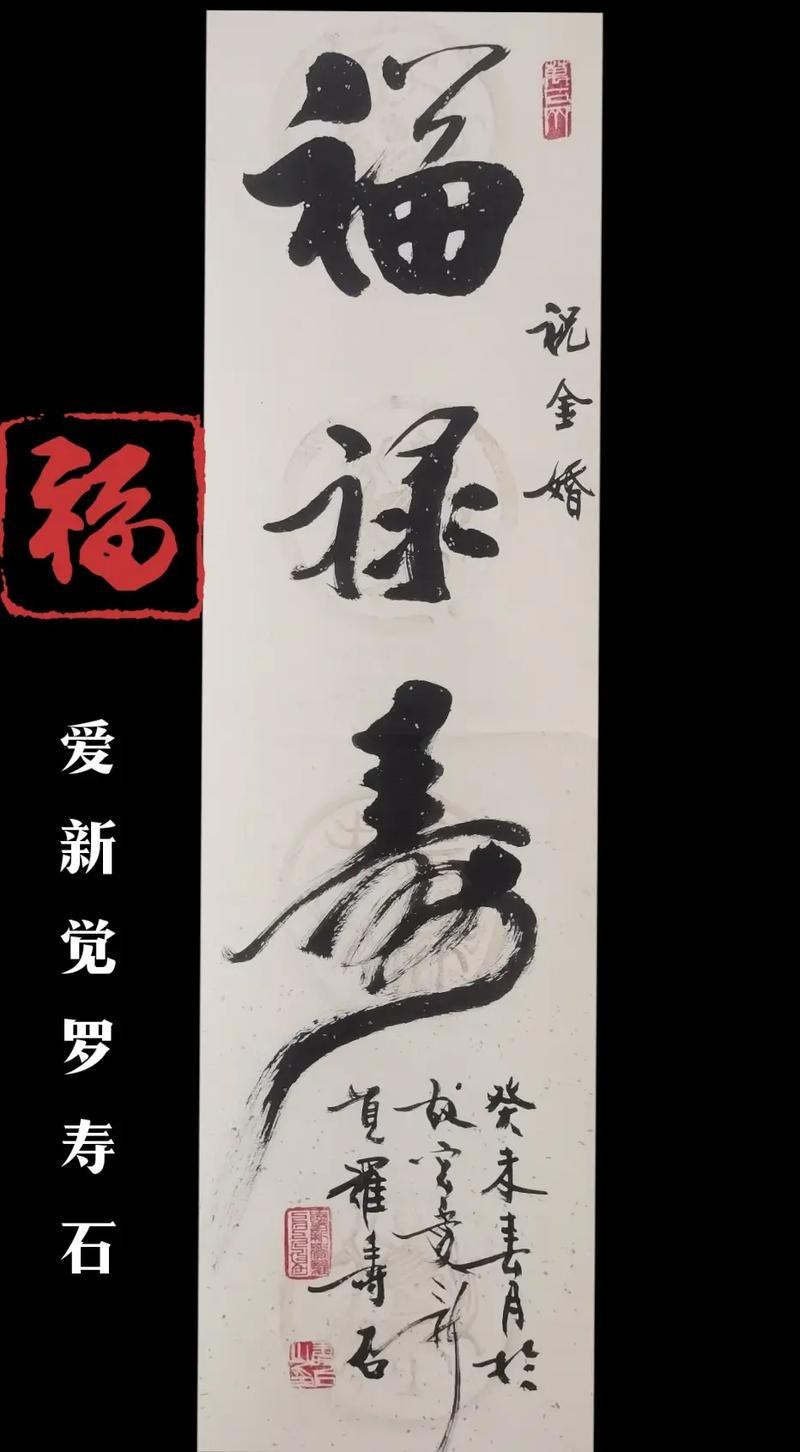 福禄寿
祝金婚
癸未春月於
故宫爱新
觉羅壽石
福
爱新觉罗寿石